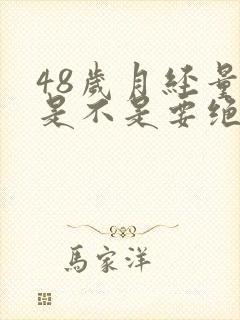 48歲月经量
是不是要绝
馬家洋